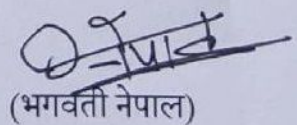 (भगवती नेपाल)